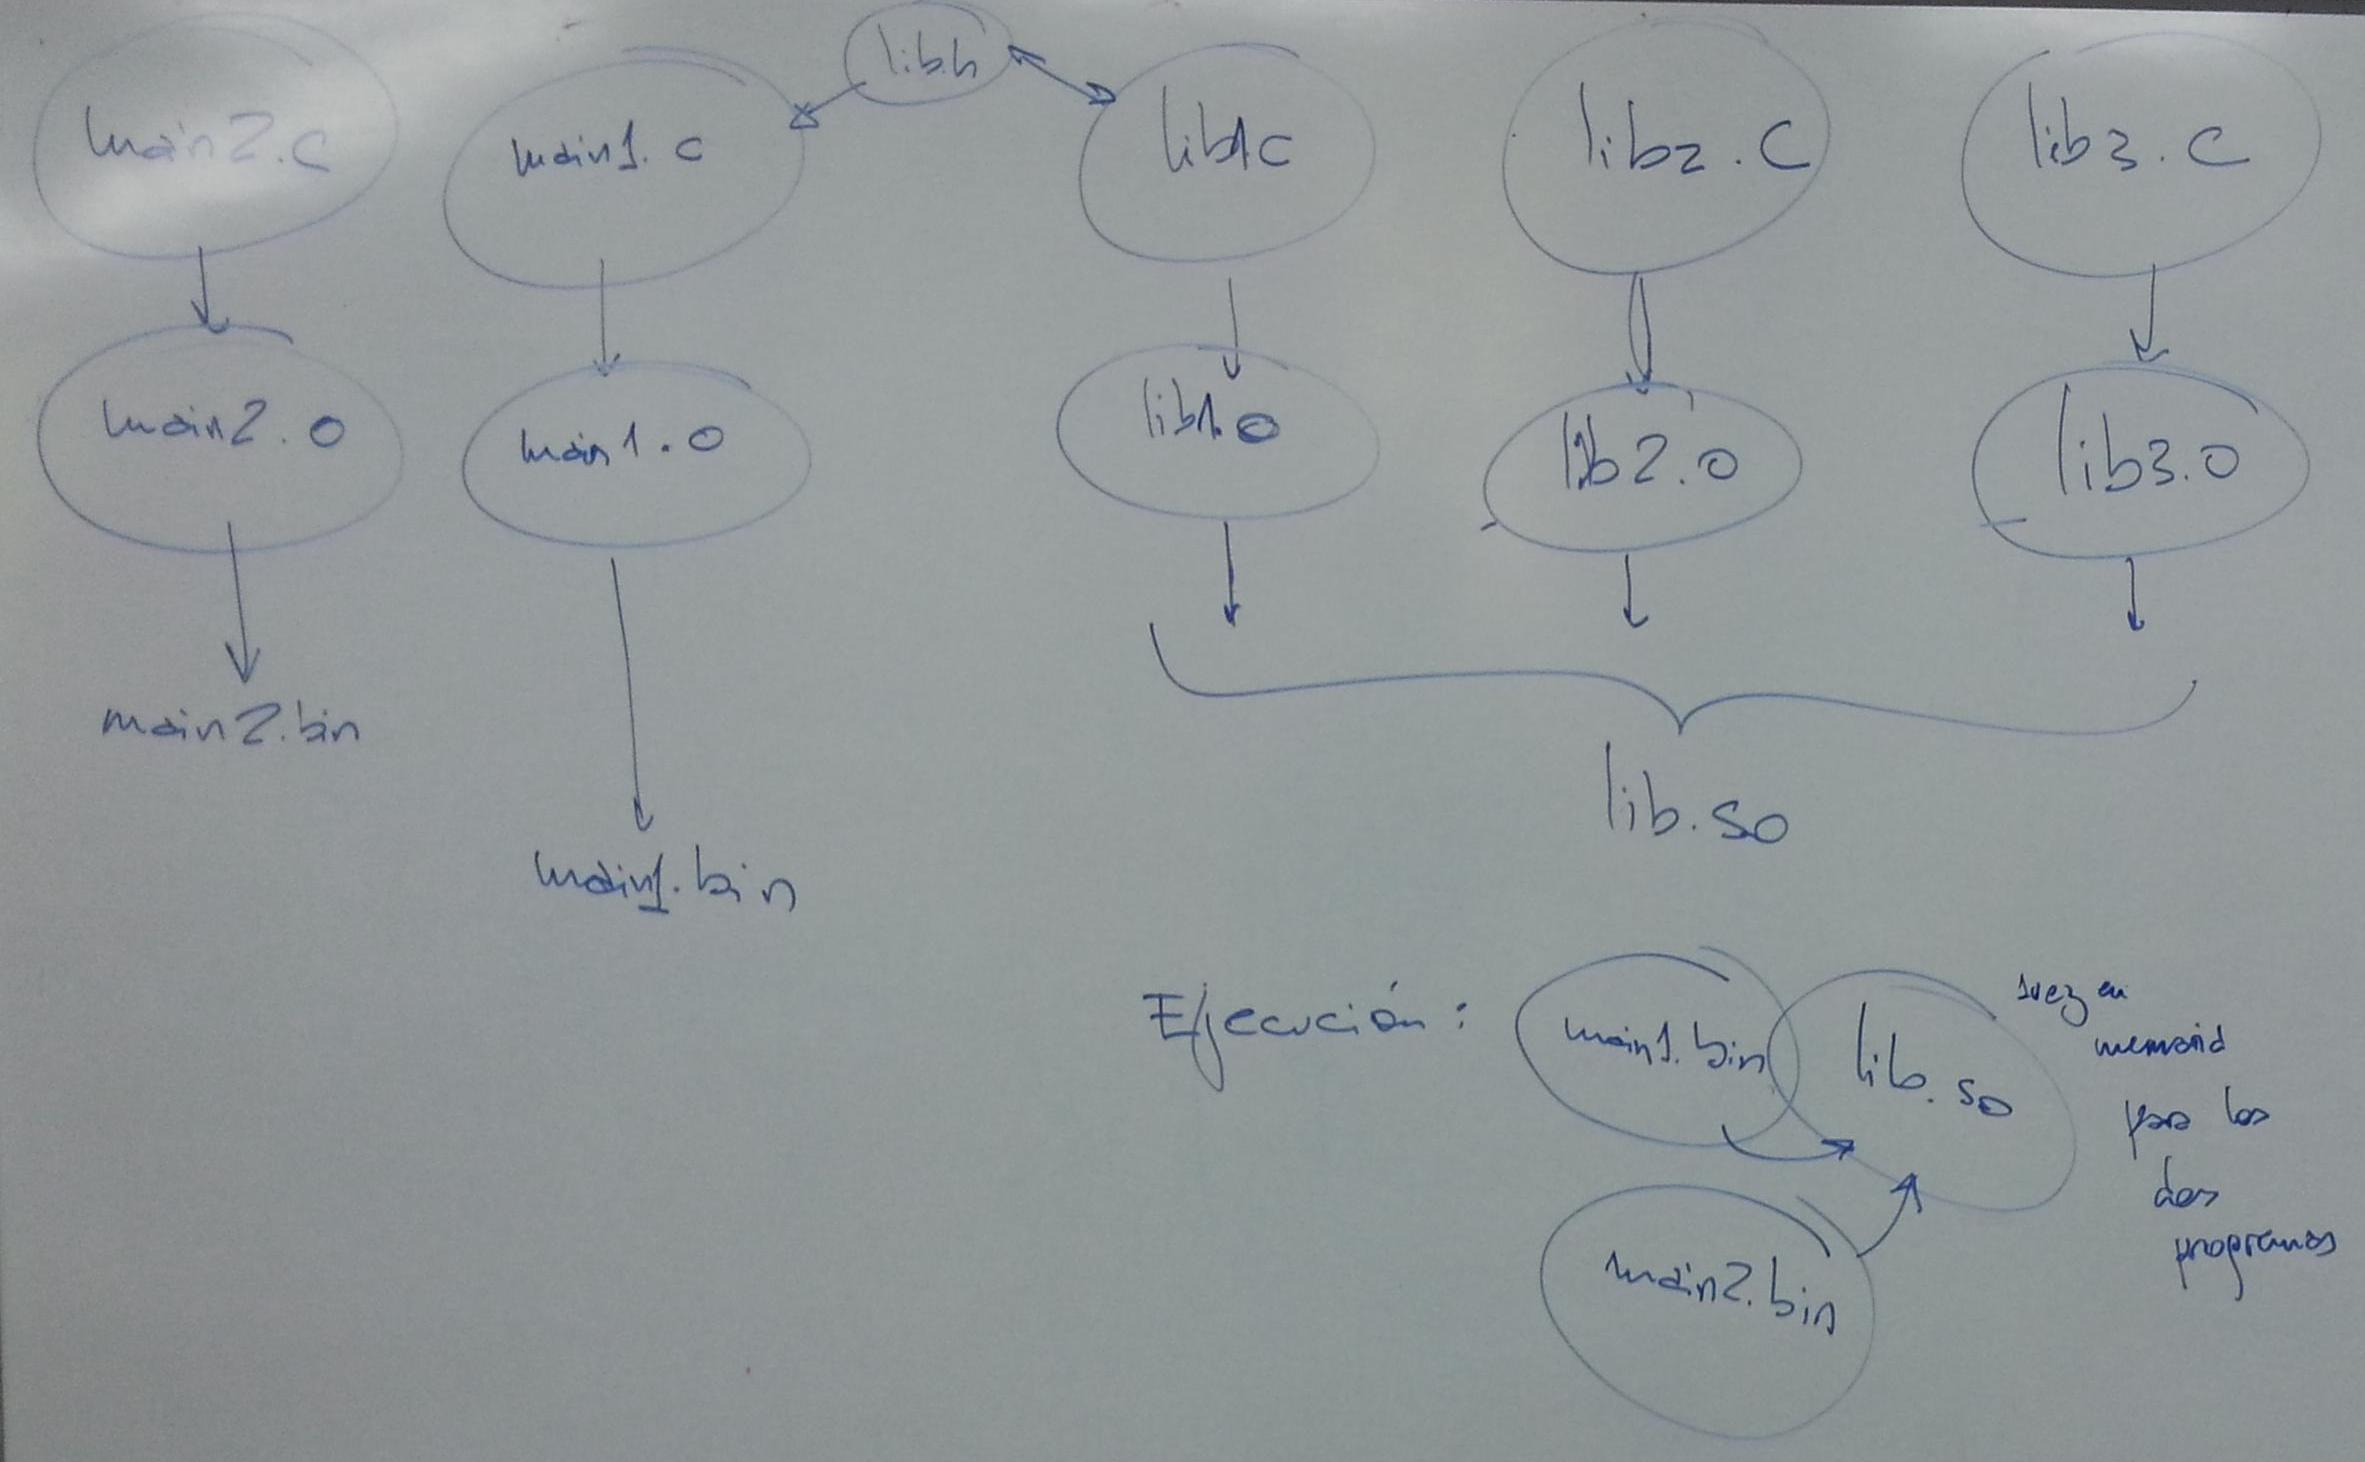 lib.h
main2.c
main1.c
lib1c
lib2.c
lib3.c
main2.o
main1.o
lib1.o
lib2.o
lib3.o
main2.bin
main1.bin
lib.so
Ejecución:
main1.bin
lib.so
1vez en
memoria
para los
dos
programas
main2.bin